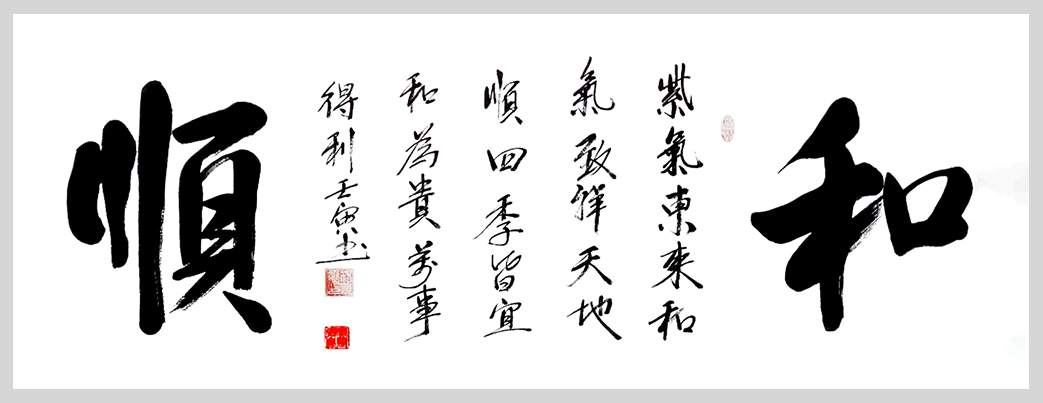 和
紫氣東來和
氣致祥天地
順四季皆宜
和為貴萬事
得利壬寅書
順